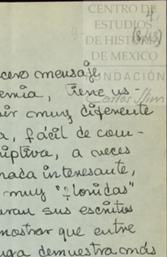 CENTRO DE
ESTUDIOS
DE HISTORIA
DE MEXICO
FUNDACIÓN
Carlos Slim
cero mensaje
emia, tiene us-
ir muy diferente
a, fácil de com-
iptiva, a veces
nada interesante,
muy "floridas"
aran sus escritos
mostrar que entre
uga demuestra más